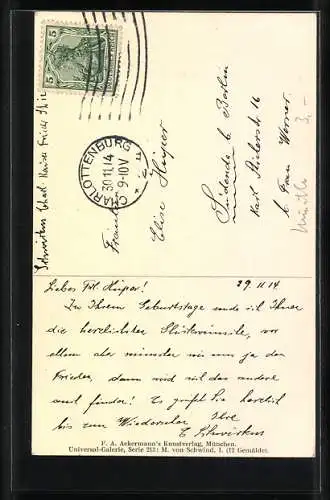 5 5
CHARLOTTENBURG
30.11.14
9-10V
Fräulein
Elise Küper
Südende b Berlin
Karl Stielerstr 16
b Frau Werner
3.-
29.11.14
Liebes Frl Küper!
Zu Ihrem Geburtstage sende ich Ihnen
die herzlichsten Glückwünsche, vor
allem aber wünschen wir uns ja den
Frieden, dann wird sich das andere
auch finden! Es grüßt Sie herzlich
bis zum Wiedersehn Ihre
E Schwirkus
F. A. Ackermann's Kunstverlag, München.
Universal-Galerie, Serie 213: M. von Schwind, I. (12 Gemälde).